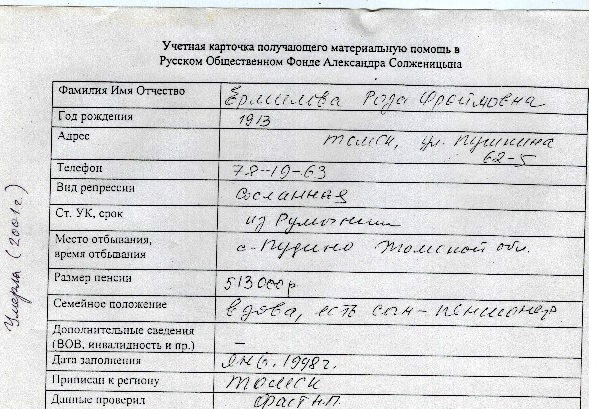 Учетная карточка получающего материальную помощь в
Русском Общественном Фонде Александра Солженицына
Фамилия Имя Отчество Ермилова Роза Фроймовна
Год рождения 1913
Адрес Томск, ул. Пушкина
62-5
Телефон 78-19-63
Вид репрессии Сосланная
Ст. УК, срок из Румынии
Место отбывания,
время отбывания с. Пудино Томской обл.
Размер пенсии 513000р
Семейное положение вдова, есть сын-пенсионер
Дополнительные сведения
(ВОВ, инвалидность и пр.) –
Дата заполнения янв. 1998г.
Приписан к региону Томск
Данные проверил Фаст Н.П.
Умерла (2001г)